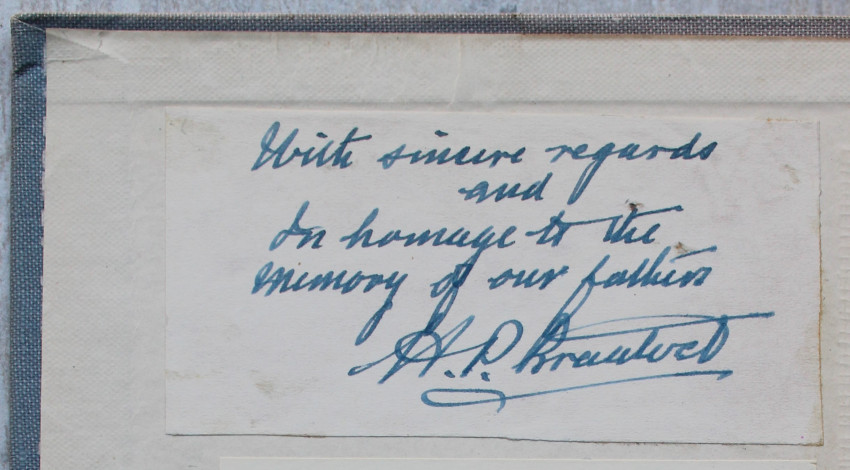 With sincere regards
and
In homage to the
memory of our fathers
H. P. Braatvedt